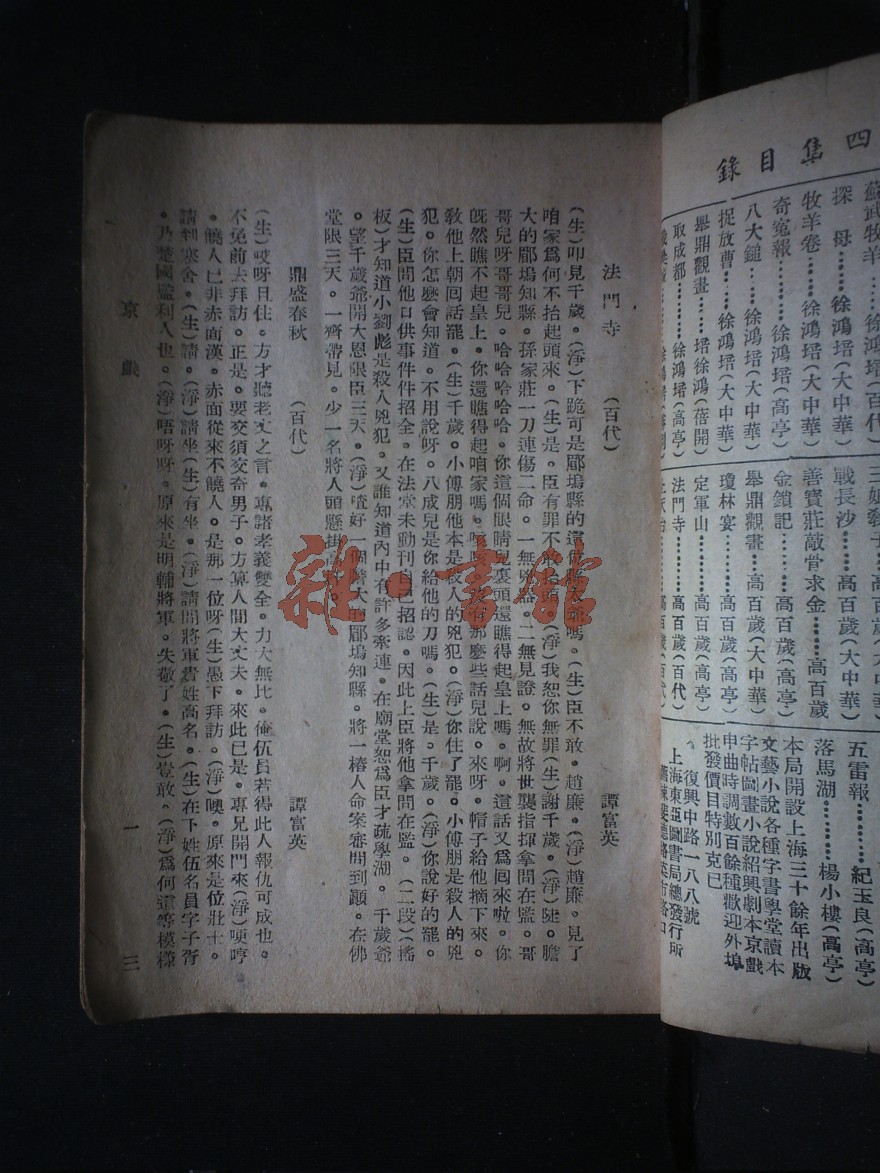 四集目錄
蘇武牧羊……徐鴻培(百代)
探母……徐鴻培(大中華)
牧羊卷……徐鴻培(大中華)
奇冤報……徐鴻培(高亭)
八大鎚……徐鴻培(大中華)
捉放曹……徐鴻培(大中華)
舉鼎觀畫……培徐鴻(蓓開)
取成都……徐鴻培(高亭)
三娘教子……高百歲(高亭)
戰長沙……高百歲(大中華)
善寶莊敲骨求金……高百歲
金鎖記……高百歲(高亭)
舉鼎觀畫……高百歲(大中華)
瓊林宴……高百歲(大中華)
定軍山……高百歲(高亭)
法門寺……高百歲(百代)
五雷報……紀玉良(高亭)
落馬湖……楊小樓(高亭)
本局開設上海三十餘年出版
文藝小說各種字書學堂讀本
字帖圖畫小說紹興劇本京戲
申曲時調數百餘種歡迎外埠
批發價目特別克已
復興中路一八八號
上海東亞圖書局總發行所
法門寺 (百代) 譚富英
(生)叩見千歲。(淨)下跪可是郿塢縣的這位縣太爺嗎。(生)臣不敢。趙廉。(淨)趙廉。見了
咱家爲何不抬起頭來。(生)是。臣有罪不敢抬頭。(淨)我恕你無罪(生)謝千歲。(淨)陡。膽
大的郿塢知縣。孫家莊一刀連傷二命。一無兇器。二無見證。無故將世襲指揮拿問在監。哥
哥兒呀哥哥兒。哈哈哈哈哈。你這個眼睛兒裏頭還瞧得起皇上嗎。啊。這話又爲囘來啦。你
旣然瞧不起皇上。你還瞧得起咱家嗎。
敎他上朝囘話罷。(生)千歲。小傅朋他本是殺人的兇犯。(淨)你住了罷。小傅朋是殺人的兇
犯。你怎麼會知道。不用說呀。八成兒是你給他的刀嗎。(生)是。千歲。(淨)你說好的罷。
(生)臣問他口供事件件招全。在法堂未動刑自己招認。因此上臣將他拿問在監。(二段)(搖
板)才知道小劉彪是殺人兇犯。又誰知道內中有許多牽連。在廟堂恕爲臣才疏學湖。千歲爺
。望千歲爺開大恩限臣三天。(淨)喳好一個膽大的郿塢知縣。將一樁人命案審問到顚。在佛
堂限三天。一齊帶見。少一名將人頭懸掛高
鼎盛春秋 (百代) 譚富英
(生)哎呀且住。方才聽老丈之言。專諸孝義雙全。力大無比。俺伍員若得此人報仇可成也。
不免前去拜訪。正是。要交須交奇男子。方算人間大丈夫。來此已是。專兄開門來(淨)哽哼
。饒人已非赤面漢。赤面從來不饒人。是那一位呀(生)愚下拜訪。(淨)噢。原來是位壯士。
請到寒舍。(生)請。(淨)請坐(生)有坐。(淨)請問將軍貴姓高名。(生)在下姓伍名員字子胥
。乃楚國監利人也。(淨)唔呀呀。原來是明輔將軍。失敬了。(生)豈敢。(淨)爲何這等模樣
京戲 一 三
雜書館